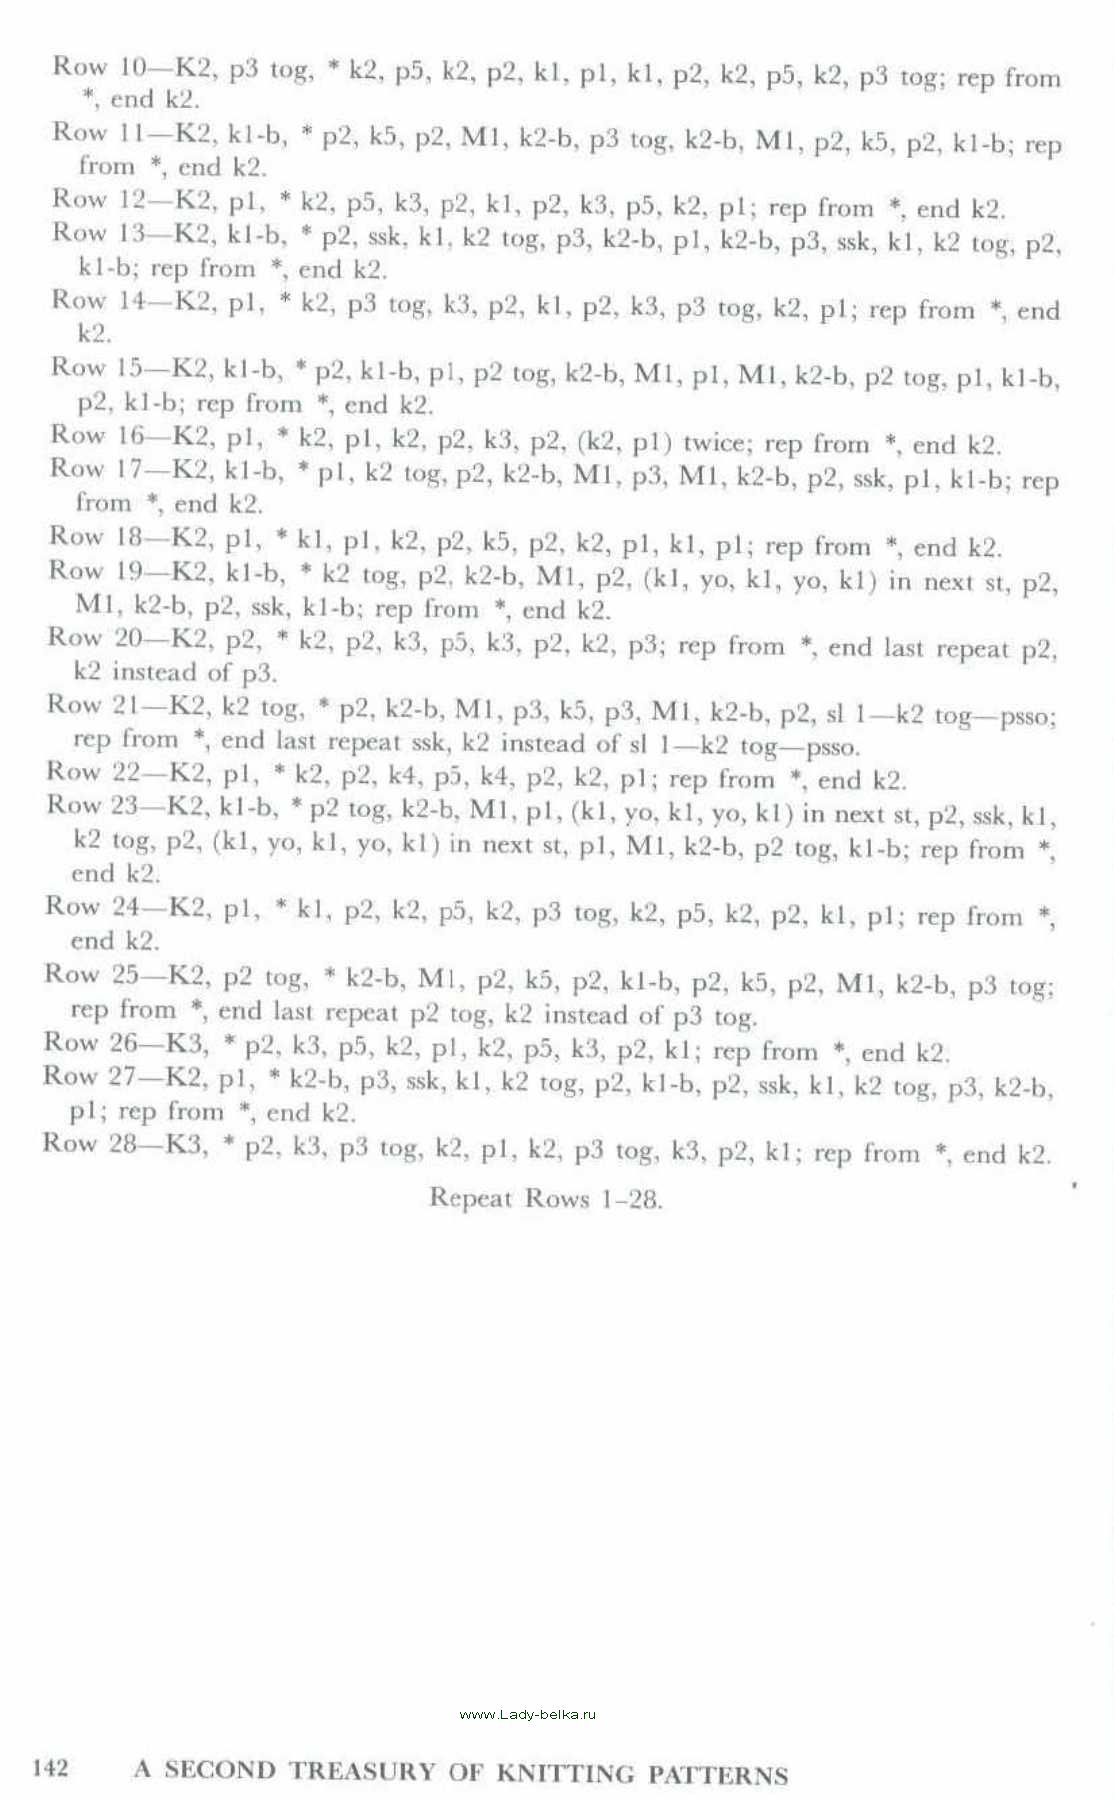 Row 10—K2, p3 tog, * k2, p5, k2, p2, k1, p1, k1, p2, k2, p5, k2, p3 tog; rep from
*, end k2.
Row 11—K2, k1-b, * p2, k5, p2, M1, k2-b, p3 tog, k2-b, M1, p2, k5, p2, k1-b; rep
from *, end k2.
Row 12—K2, p1, * k2, p5, k3, p2, k1, p2, k3, p5, k2, p1; rep from *, end k2.
Row 13—K2, k1-b, * p2, ssk, k1, k2 tog, p3, k2-b, p1, k2-b, p3, ssk, k1, k2 tog, p2,
k1-b; rep from *, end k2.
Row 14—K2, p1, * k2, p3 tog, k3, p2, k1, p2, k3, p3 tog, k2, p1; rep from *, end
k2.
Row 15—K2, k1-b, * p2, k1-b, p1, p2 tog, k2-b, M1, p1, M1, k2-b, p2 tog, p1, k1-b,
p2, k1-b; rep from *, end k2.
Row 16—K2, p1, * k2, p1, k2, p2, k3, p2, (k2, p1) twice; rep from *, end k2.
Row 17—K2, k1-b, * p1, k2 tog, p2, k2-b, M1, p3, M1, k2-b, p2, ssk, p1, k1-b; rep
from *, end k2.
Row 18—K2, p1, * k1, p1, k2, p2, k5, p2, k2, p1, k1, p1; rep from *, end k2.
Row 19—K2, k1-b, * k2 tog, p2, k2-b, M1, p2, (k1, yo, k1, yo, k1) in next st, p2,
M1, k2-b, p2, ssk, k1-b; rep from *, end k2.
Row 20—K2, p2, * k2, p2, k3, p5, k3, p2, k2, p3; rep from *, end last repeat p2,
k2 instead of p3.
Row 21—K2, k2 tog, * p2, k2-b, M1, p3, k5, p3, M1, k2-b, p2, sl 1—k2 tog—psso;
rep from *, end last repeat ssk, k2 instead of sl 1—k2 tog—psso.
Row 22—K2, p1, * k2, p2, k4, p5, k4, p2, k2, p1; rep from *, end k2.
Row 23—K2, k1-b, * p2 tog, k2-b, M1, p1, (k1, yo, k1, yo, k1) in next st, p2, ssk, k1,
k2 tog, p2, (k1, yo, k1, yo, k1) in next st, p1, M1, k2-b, p2 tog, k1-b; rep from *,
end k2.
Row 24—K2, p1, * k1, p2, k2, p5, k2, p3 tog, k2, p5, k2, p2, k1, p1; rep from *,
end k2.
Row 25—K2, p2 tog, * k2-b, M1, p2, k5, p2, k1-b, p2, k5, p2, M1, k2-b, p3 tog;
rep from *, end last repeat p2 tog, k2 instead of p3 tog.
Row 26—K3, * p2, k3, p5, k2, p1, k2, p5, k3, p2, k1; rep from *, end k2.
Row 27—K2, p1, * k2-b, p3, ssk, k1, k2 tog, p2, k1-b, p2, ssk, k1, k2 tog, p3, k2-b,
p1; rep from *, end k2.
Row 28—K3, * p2, k3, p3 tog, k2, p1, k2, p3 tog, k3, p2, k1; rep from *, end k2.
Repeat Rows 1–28.
www.Lady-belka.ru
142 A SECOND TREASURY OF KNITTING PATTERNS